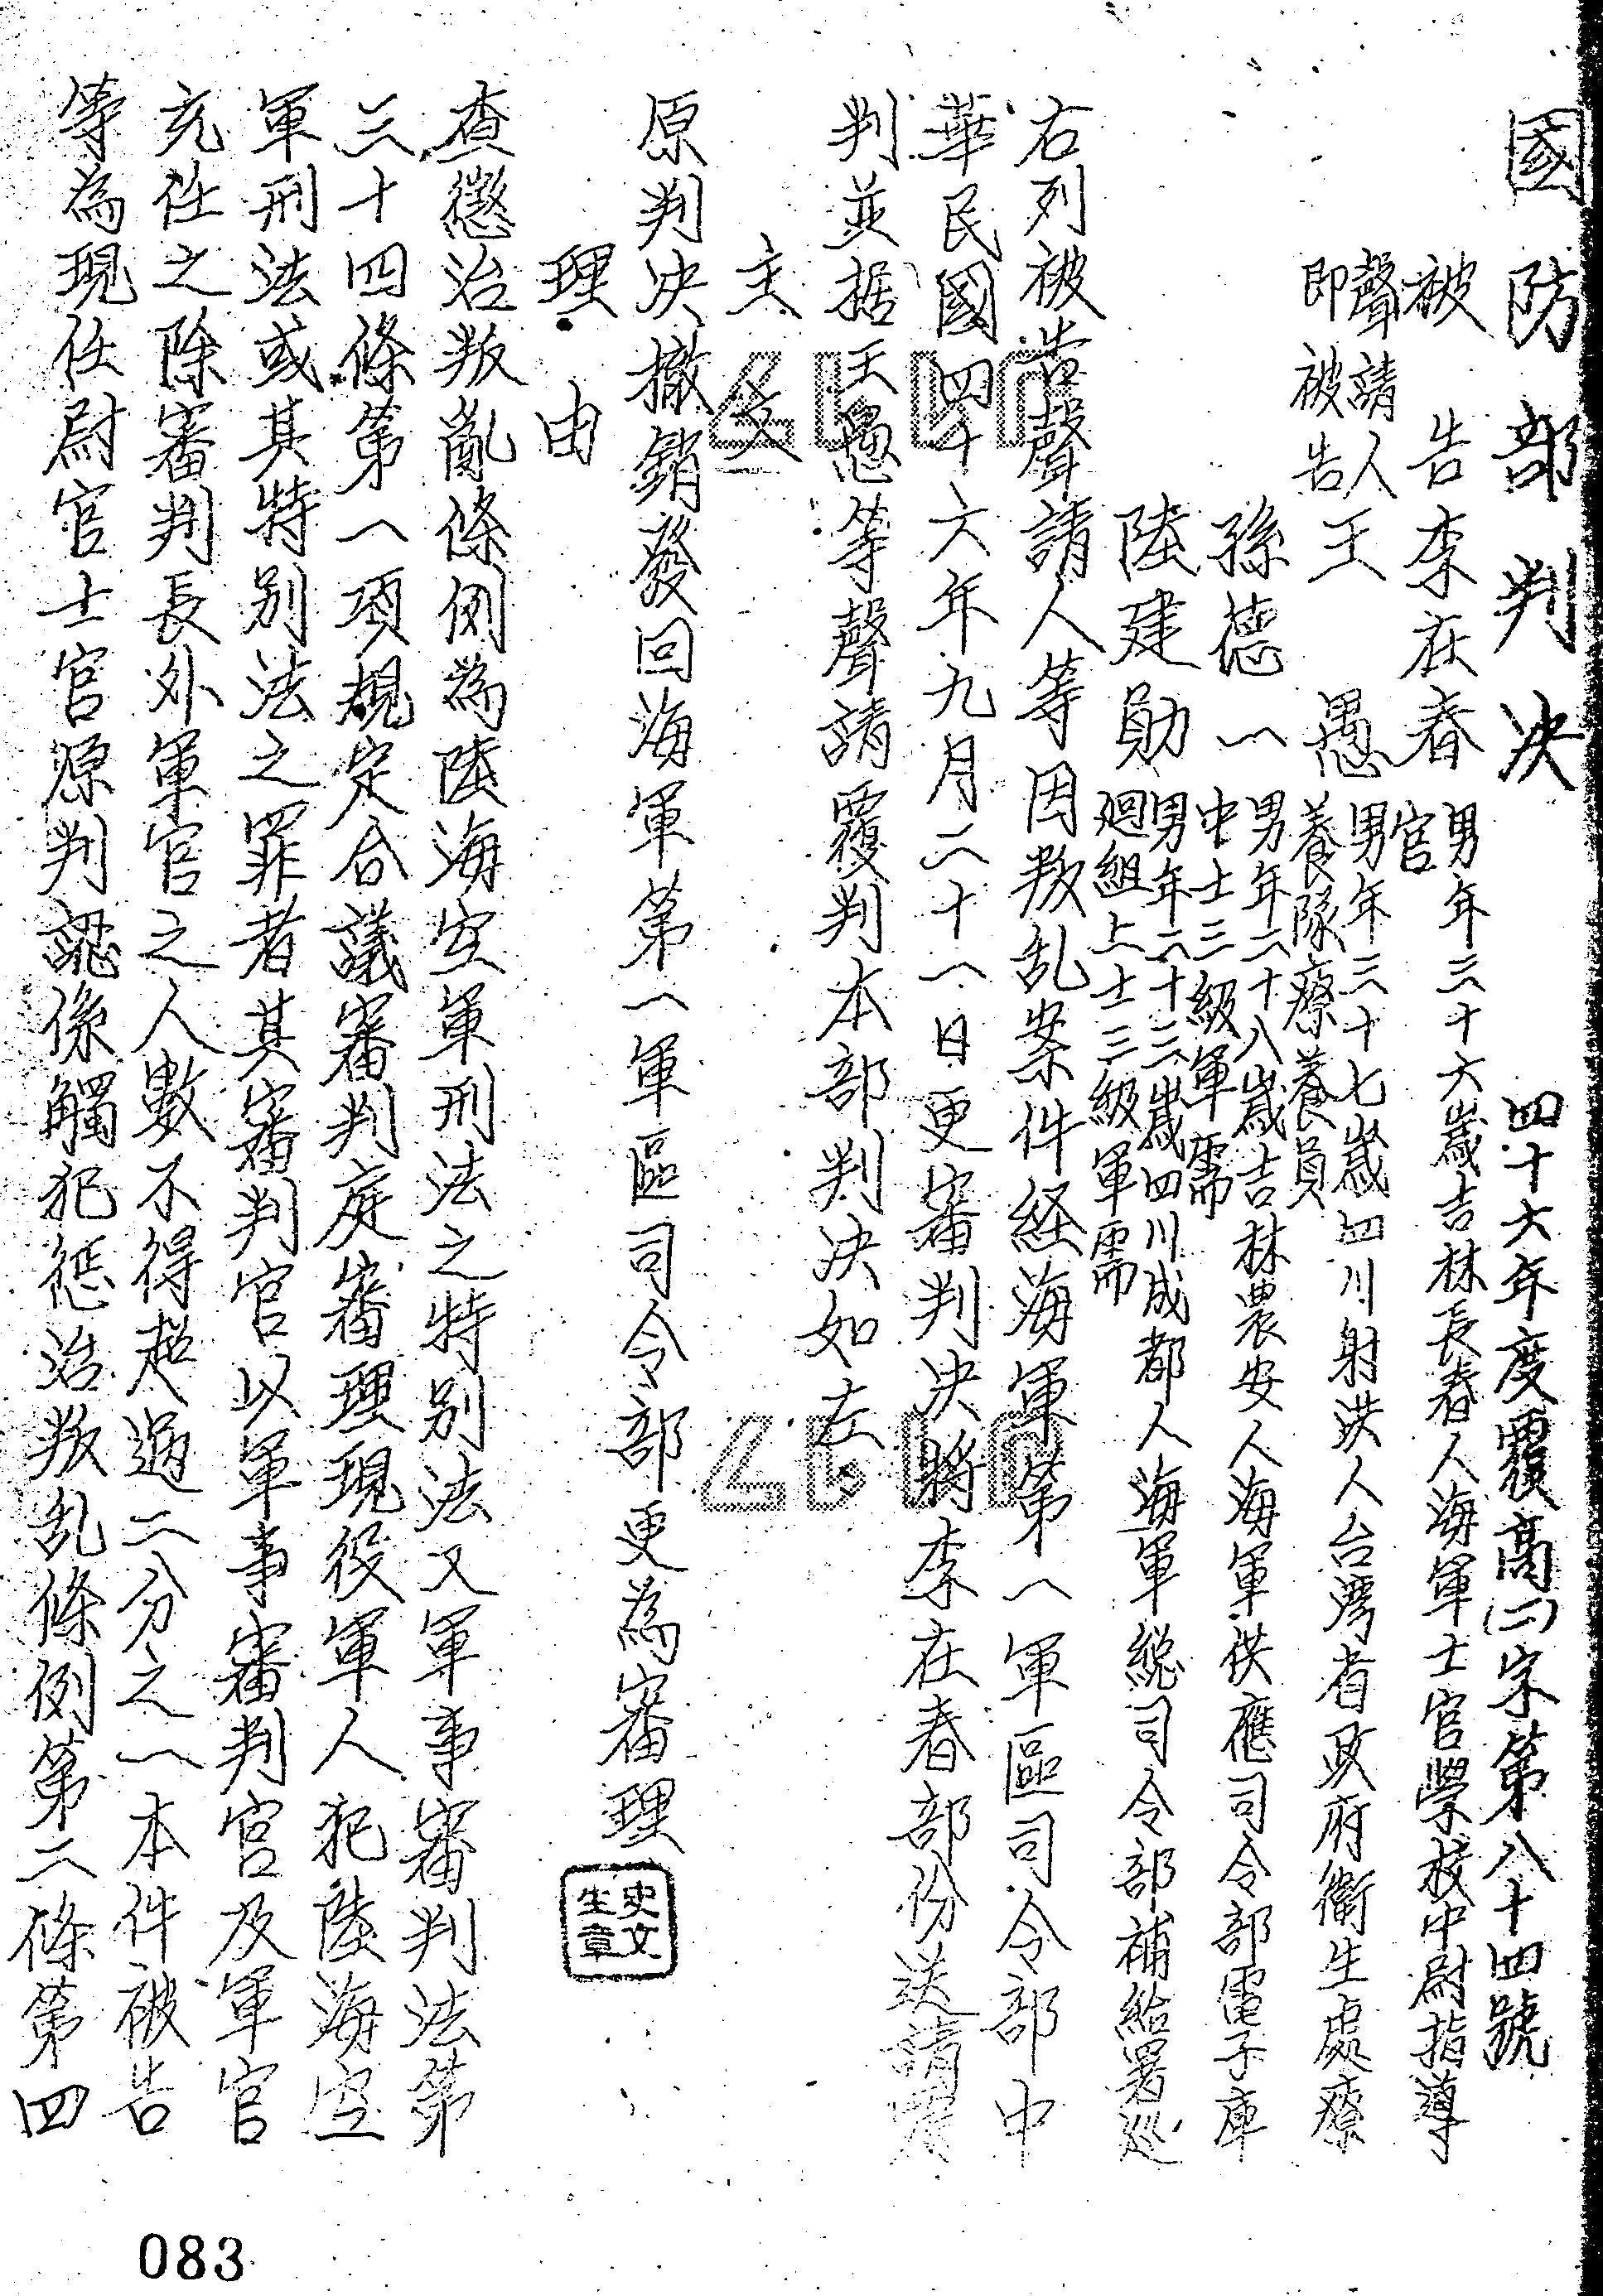 國防部判決 四十六年度覆高(二)字第八十四號
被告李在春 男年三十六歲吉林長春人海軍士官學校中尉指導
官
聲請人
即被告 王愚 男年三十七歲四川射洪人台灣省政府衛生處療
養隊療養員
孫德一 男年二十八歲吉林農安人海軍供應司令部電子庫
中士三級軍需
陸建勛 男年二十三歲四川成都人海軍總司令部補給署巡
迴組上士三級軍需
右列被告聲請人等因叛乱案件経海軍第一軍區司令部中
華民國四十六年九月二十一日更審判决將李在春部份送請覆
判並据王愚等聲請覆判本部判决如左
主文
原判决撤銷發回海軍第一軍區司令部更為審理
史文
生章
理由
查懲治叛亂條例為陸海空軍刑法之特别法又軍事審判法第
三十四條第一項規定合議審判庭審理現役軍人犯陸海空
軍刑法或其特别法之罪者其審判官以軍事審判官及軍官
充任之除審判長外軍官之人數不得超過二分之一本件被告
等為現任尉官士官原判認係觸犯惩治叛乱條例第二條第四
083